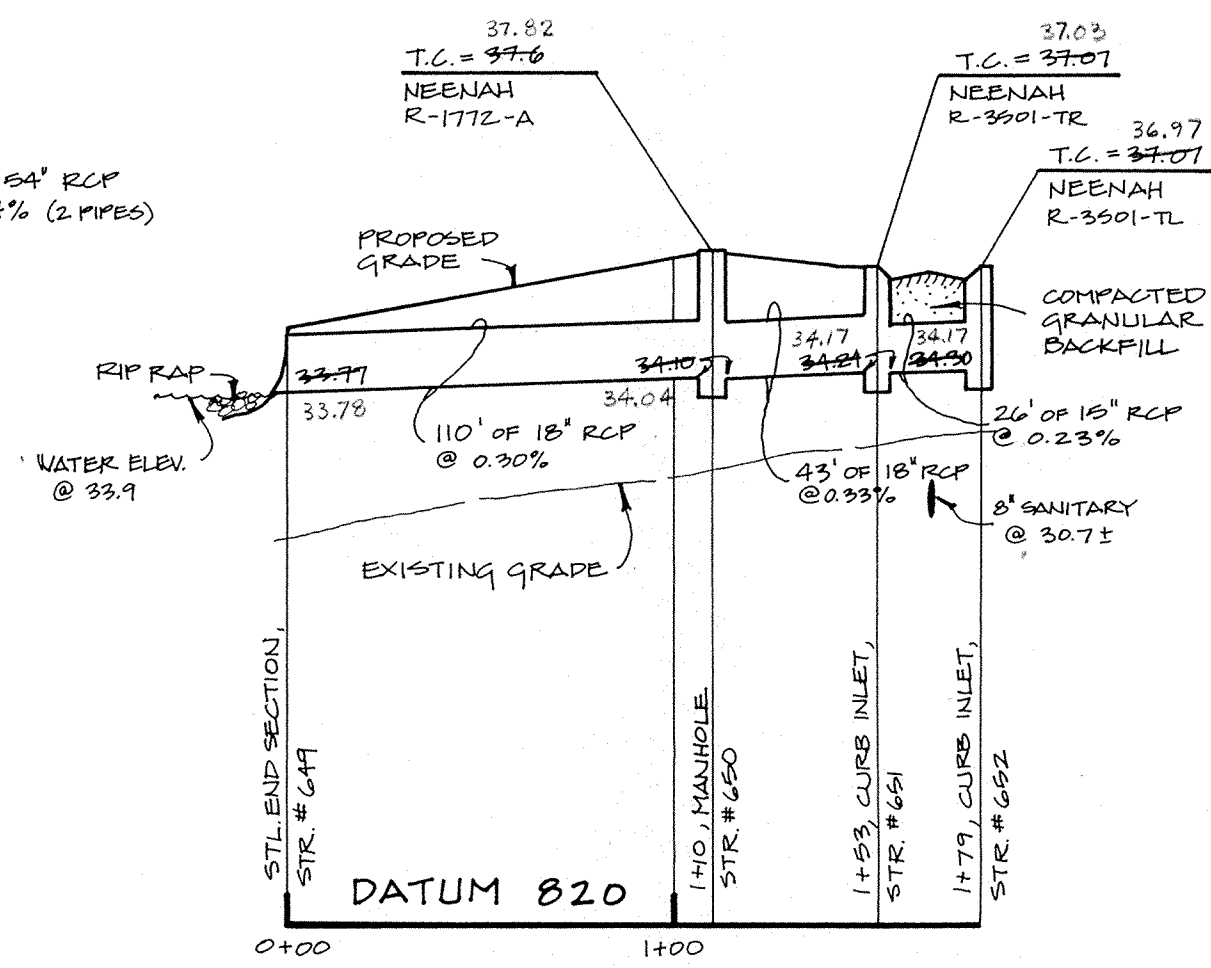 37.82
T.C. = 37.6
NEENAH
R-1772-A
37.03
T.C. = 37.07
NEENAH
R-3501-TR
36.97
T.C. = 37.07
NEENAH
R-3501-TL
54" RCP
% (2 PIPES)
PROPOSED
GRADE
COMPACTED
GRANULAR
BACKFILL
RIP RAP
33.77
33.78
34.10
34.04
34.17
34.21
34.17
34.30
WATER ELEV.
@ 33.9
110' OF 18" RCP
@ 0.30%
43' OF 18" RCP
@ 0.33%
26' OF 15" RCP
@ 0.23%
8" SANITARY
@ 30.7 ±
EXISTING GRADE
STL. END SECTION,
STR. # 649
1+10, MANHOLE
STR. # 650
1+53, CURB INLET,
STR. # 651
1+79, CURB INLET,
STR. # 652
DATUM 820
0+00
1+00